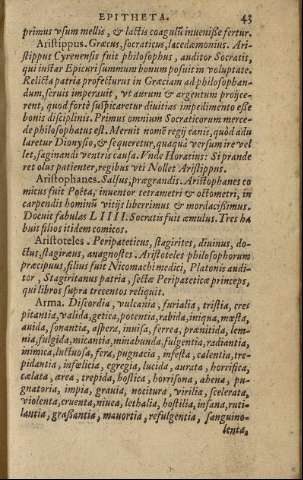 EPITHETA. 43
primus vsum mellis, & lactis coagulũ inuenisse fertur.
Aristippus. Græcus, socraticus, lacedæmonius. Ari-
stippus Cyrenensis fuit philosophus, auditor Socratis,
qui instar Epicuri summum bonum posuit in voluptate.
Relicta patria profecturus in Græciam ad philosophan-
dum, seruis imperauit, vt aurum & argentum proijce-
rent, quod fortè suspicaretur diuitias impedimento esse
bonis disciplinis. Primus omnium Socraticorum merce-
de philosophatus est. Meruit nomẽ regij canis, quòd adu
laretur Dionysio, & sequeretur, quaqua versum ire vel
let, saginandi ventris causa. Vnde Horatius: Si prande
ret olus patienter, regibus vti Nollet Aristippus.
Aristophanes. Salsus, prægrandis. Aristophanes co
micus fuit Poëta, inuentor tetrametri & octometri, in
carpendis hominũ vitijs liberrimus & mordacissimus.
Docuit fabulas LIIII. Socratis fuit æmulus. Tres ha
buit filios itidem comicos.
Aristoteles. Peripateticus, stagirites, diuinus, do-
ctus, stagiræus, anagnostes. Aristoteles philosophorum
præcipuus, filius fuit Nicomachi medici, Platonis audi-
tor, Stagiritanus patria, sectæ Peripateticæ princeps,
qui libros supra trecentos reliquit.
Arma. Discordia, vulcania, furialia, tristia, cre-
pitantia, valida, getica, potentia, rabida, iniqua, mœsta,
auida, sonantia, aspera, inuisa, ferrea, prænitida, lem-
nia, fulgida, micantia, minabunda, fulgentia, radiantia,
inimica, luctuosa, fera, pugnacia, infesta, calentia, tre-
pidantia, infœlicia, egregia, lucida, aurata, horrifica,
cælata, ærea, trepida, hostica, horrisona, ahena, pu-
gnatoria, impia, grauia, nocitura, virilia, scelerata,
violenta, cruenta, niuea, lethalia, hostilia, insana, ruti-
lantia, grassantia, mauortia, refulgentia, sanguino-
lenta,